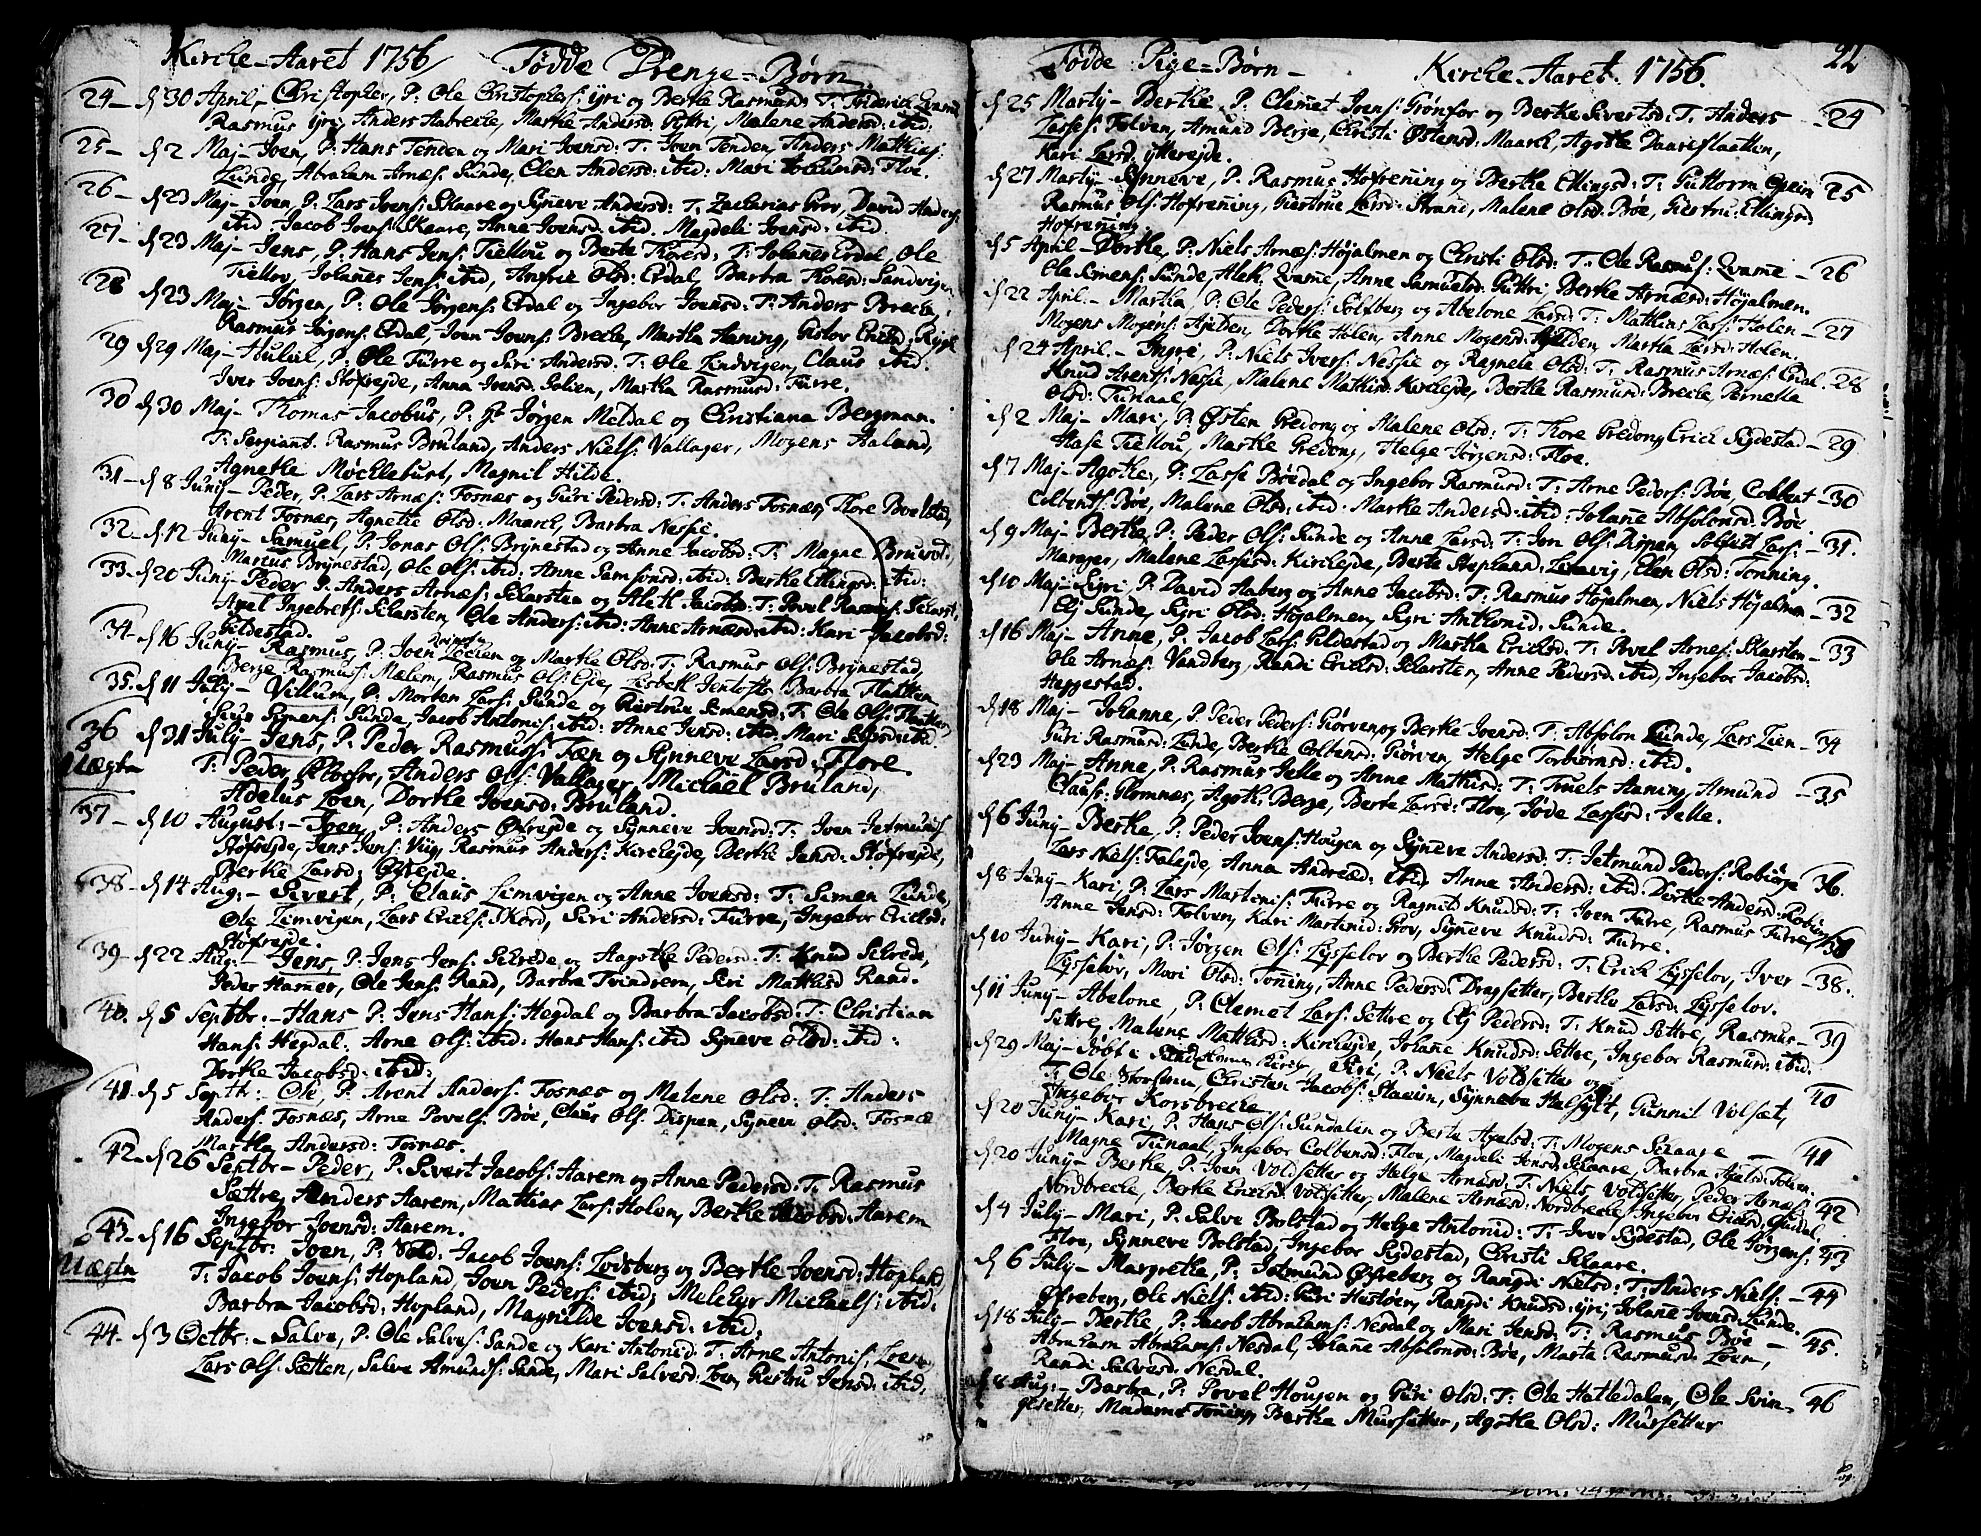 Kirche-Aaret 1756 Fødde Drenge-Børn
24 - d 30 April - Christopher, P: Ole Christophers: yri og Berthe Rasmusd: T: Friderich Qvame
Rasmus yri, Anders Aabrecke, Marthe Andersd: Gytri, Malene Andersd: ibid.
25 - d 2 Maj - Joen, P: Hans Tenden og Mari Joensd: T: Joen Tenden, Anders Mathias:
Lunde, Abraham Arnæs: Sunde, Elen Andersd: ibid: Mari Floe.
26 - d 23 Maj - Joen, P: Lars Joens: Skaare og Synneve Andersd: T: Zacharias Grov, David Anders:
ibid Jacob Joens: Skaare, Anne Joensd: ibid. Magdeli Joensd: ibid.
27 - d 23 Maj - Jens, P: Hans Jens: Tiellou og Berte Thoresd: T: Johanes Erdal, Ole
Tiellov, Johanes Jens: ibid, Anfrie Olsd: Erdal, Barbra Thoresd: Sandvigen
28 d 23 Maj - Jørgen, P: Ole Jørgens: Erdal og Ingebor Joensd: T: Anders Brecke,
Rasmus Jørgens: Erdal, Joen Joens: Brecke, Martha Haning, Gistov Ericksd: Rygg
29 d 29 Maj - P: Ole Furre og Siri Andersd: T: Ole Lindvigen, Claus ibid.
Iver Joens: Støfrejde, Anna Joensd: Folien, Martha Rasmusd: Furre.
30 d 30 Maj - Thomas Jacobus, P: Hr Jørgen Meldal og Christiana Bergman.
T: Sergiant. Rasmus Bruland, Anders Niels: Vallager, Mogens Aaland,
Agnethe Mocklebust, Magnil Hilde.
31 - d 8 Juny - Peder, P: Lars Arnæs: Fosnæs og Guri Pedersd: T: Anders Fosnæs, Thore Bolstad,
Arent Fosnæs, Agnethe Olsd: Maarch, Barbra Nessie.
32 - d 12 Juny - Samuel, P: Jonas Ols: Brynestad og Anne Jacobsd: T: Magne
Marcus Brynestad, Ole Ols: ibid: Anne Samsonsd: ibid: Berthe Ellingsd: ibid:
33 - d 20 Juny - Peder P: Anders Arnæs: Skarsten og Aleth Jacobsd: T: Povel Rasmus: Skarst:
Axel Ingebrets: Skarsten, Ole Anders: ibid: Anne Arnæsd: ibid: Kari Jacobsd:
Gildestad.
34 - d 16 Juny - Rasmus, P: Joen Loeien og Marthe Olsd: T: Rasmus Ols: Brynestad,
Berge Rasmus: Mælem, Rasmus Ols: Eje, Lisbeth Jentoft, Barbra Flatten
35 - d 11 July - Villum, P: Morten Lars: Sunde og Giertrue Simensd: T: Ole Ols: Flatten
Simens: Sunde, Jacob Antonis: ibid: Anne Jensd: ibid: Mari ibid.
36 d 31 July - Jens, P: Peder Rasmus: Tæn og Synneve Larsd: Flore
Uægte T: Peder Anders Ols: Vallager, Michael Bruland,
Adelus Loen, Dorthe Joensd: Bruland.
37 - d 10 August: - Joen, P: Anders Øfrejde og Synneve Joensd: T: Joen Jetmunds
Støfrejde, Jens Jens: Viig, Rasmus Anders: Kirckejde, Berthe Jensd: Støfrejde,
Berthe Larsd: Øfrejde.
38 - d 14 Aug: - Sivert, P: Claus Limvigen og Anne Joensd: T: Simen Lunde,
Ole Limvigen, Lars Ericks: Skørd, Siri Andersd: Furre, Ingebor Ericksd:
Støfrejde.
39 - d 22 Aug: - Jens, P: Jens Jens: Skrede og Aagothe Pedersd: T: Knud Skrede,
Peder Hamer, Ole Jens: Rand, Barbra Tvindrem, Siri Mathisd Rand.
40 d 5 Septbr: - Hans P: Jens Hans: Hegdal og Barbra Jacobsd: T: Christian
Hans: Hegdal. Arne Ols: ibid: Hans Hans: ibid Synneve Olsd: ibid:
Dorthe Jacobsd: ibid:
41 d 5 Septbr: Ole, P: Arent Anders: Fosnæs og Malene Olsd: T: Anders
Anders: Fosnæs, Arne Povels: Bøe, Claus Ols: Dispen, Synneve Olsd: Fosnæs
Martha Andersd: Fosnæs.
42 - d 26 Septbr - Peder, P: Sivert Jacobs: Aarem og Anne Pedersd: T: Rasmus
Sættre, Anders Aarem, Mathias Lars: Holen, Berthe Jacobsd: Aarem
Ingebor Joensd: Aarem.
43 - d 16 Septbr: Joen, P: Jacob Joens: Lodsberg og Berthe Joensd: Hopland
Uægte T: Jacob Joens: Hopland, Joen Peders: ibid, Melchior Michaels: ibid:
Barbra Jacobsd: Hopland, Magnilde Joensd: ibid:
44 - d 3 Octbr: - Salve, P: Ole Salves: Sande og Kari Antonid: T: Arne Antonis: Loen,
Lars Ols: Setten, Salve Amunds: Sande, Mari Salvesd: Loen, Gestru Jensd: ibid,
Fødde Pige-Børn - Kirche-Aaret. 1756. 22
d 25 Marty - Berthe, P. Clemet Joens: Grønfor og Berthe Sivertsd: T: Anders - 24
Lasses: Folven, Amund Berge, Christi Østensd: Maarch, Agothe Daareflaatten,
Kari Larsd: ytterejde.
d 27 Marty - Synneve, P. Rasmus Hofrening og Berthe Ellingsd: T: Guttorm 25
Rasmus Ols: Hofrening, Giertrue Larsd: Strand, Malene Olsd: Bøe, Giertru Ellingsd
Hofrening.
d 5 April - Dorthe, P: Niels Arnæs: Højalmen og Christi Olsd: T: Ole Rasmus: Qvame - 26
Ole Simens: Sunde, Aleth Qvame, Anne Samuelsd: Gyttri Berthe Arnæsd: Højalmen.
d 22 April - Martha, P: Ole Peders: Solfberg og Abelone Larsd: T: Mathias Lars: Holen - 27
Mogens Mogens: Hjelden, Dorthe Holen, Anne Mogensd: Hjelden, Martha Larsd: Holen.
d 24 April - Ingri, P: Niels Ivers: Nessie og Ragnele Olsd: T: Rasmus Arnæs: Erdal - 28
Knud Arents: Nessie, Malene Mathisd: Kirckejde, Berthe Rasmusd: Brecke, Pernelle
Olsd: Tunaal.
d 2 Maj - Mari, P: Østen Gredong og Malene Olsd: T: Thore Gredong, Erick Sejdestad - 29
Aase Tiellou, Marthe Gredong, Helge Jørgensd: Floe.
d 7 Maj - Agothe, P: Lasse Bødal og Ingebor Rasmusd: T: Arne Peders: Bøe, Colbent - 30
Colbents: Bøe, Malene Olsd: ibid: Marthe Andersd: ibid: Johane Absolonsd: Bøe
d 9 Maj - Berthe, P: Peder Ols: Sunde og Anne Larsd: T: Jon Ols: Dispen, Solfest Lars: - 31.
Marger, Malene Larsd: Kirckejde, Berte Stephansd: Lenvig, Elen Olsd: Tonning.
d 10 Maj - Sigri, P: David Aaberg og Anne Jacobsd: T: Rasmus Højalmen, Niels Højalmen - 32
Elj Sunde, Sigri Olsd: Højalmen, Sigri Anthonid: Sunde.
d 16 Maj - Anne, P: Jacob Lars: Gildestad og Martha Ericksd: T: Povel Arnes: Skarsten - 33
Ole Arnæs: Vandberg, Randi Ericksd: Skarsten, Anne Pedersd: ibid, Ingebor Jacobsd:
Heggestad.
d 18 Maj - Johanne, P: Peder Peders: Giørven og Berthe Joensd: T: Absolon Lunde, Lars Lien - 34
Guri Rasmusd: Lunde, Berthe Colbensd: Giørven, Helge Torbiørnsd: ibid.
d 23 Maj - Anne, P: Rasmus Jelle og Anne Mathisd: T: Truels Haning, Amund - 35
Claus: Glomnes, Agoth: Berge, Berte Larsd: Floe, Jøde Lassesd: Jelle.
d 6 Juny - Berthe, P: Peder Joens: Hougen og Synneve Andersd: T: Jetmund Peders: Robiørge 36.
Lars Niels: Falejde, Anna Andreæd: ibid Anne Andersd: ibid Berthe Andersd: Robiørge
d 8 Juny - Kari, P: Lars Martinis: Furre og Ragnild Knudsd: T: Joen Furre, Rasmus Furre,
Anne Jensd: Folven, Kari Martinid: Grov, Synneve Knudsd: Furre.
d 10 Juny - Kari, P: Jørgen Ols: Lysselov og Berthe Pedersd: T: Erick Lysselov, Iver - 38.
Lysselov, Mari Olsd: Toning, Anne Pedersd: Dragsetter, Berthe Larsd: Lysselov.
d 11 Juny - Abelone, P: Clemet Lars: Settre og Elj Pedersd: T: Knud Settre, Rasmus - 39
Settre, Malene Mathisd: Kirckejde, Johane Knudsd: Settre, Ingebor Rasmusd: ibid.
d 29 Maj - Døbt i Siri, P: Niels Voldsetter og 40
Ingebor Korsbrecke T: Ole Storstren, Christen Jacobs: Stavim, Synneve Helsylt, Gunnil Volsæt,
d 20 Juny - Kari, P: Hans Ols: Sundalin og Berte Axelsd: T: Mogens Skaare - 41
Magne Tunaal, Ingebor Colbensd: Floe, Magdeli Jensd: Skaare, Barbra Axelsd: Folven:
d 20 Juny - Berthe, P: Joen Voldsetter og Helge Arnæsd: T: Niels Voldsetter, Peder Arnæs:
Nordbrecke, Berthe Ericksd: Voldsetter, Malene Arnæsd: Nordbrecke, Ingebor Ericksd: 42
d 4 July - Mari, P: Salve Bolstad og Helge Antonid: T: Iver Sejdestad, Ole Jørgens:
Floe, Synneve Bolstad, Ingebor Sejdestad, Christi Skaare. 43
d 6 July - Margrethe, P: Jetmund Øfreberg og Rangdi Nielsd: T: Anders Niels: - 44
Øfreberg, Ole Niels: ibid: Guri Hestøen, Rangdi Knudsd: yri, Johane Joensd: Lunde.
d 18 July - Berthe, P: Jacob Abrahams: Nesdal og Mari Jensd: T: Rasmus Bøe - 45.
Abraham Abrahams: Nesdal, Johane Absolonsd: Bøe, Marta Rasmusd: Loen,
Randi Salvesd: Nesdal.
d 8 Aug: - Barbra, P: Povel Hougen og Guri Olsd: T: Ole Hatledalen, Ole Svin- 46
gesetter, Madame Toning, Berthe Mursetter, Agothe Olsd: Mursetter